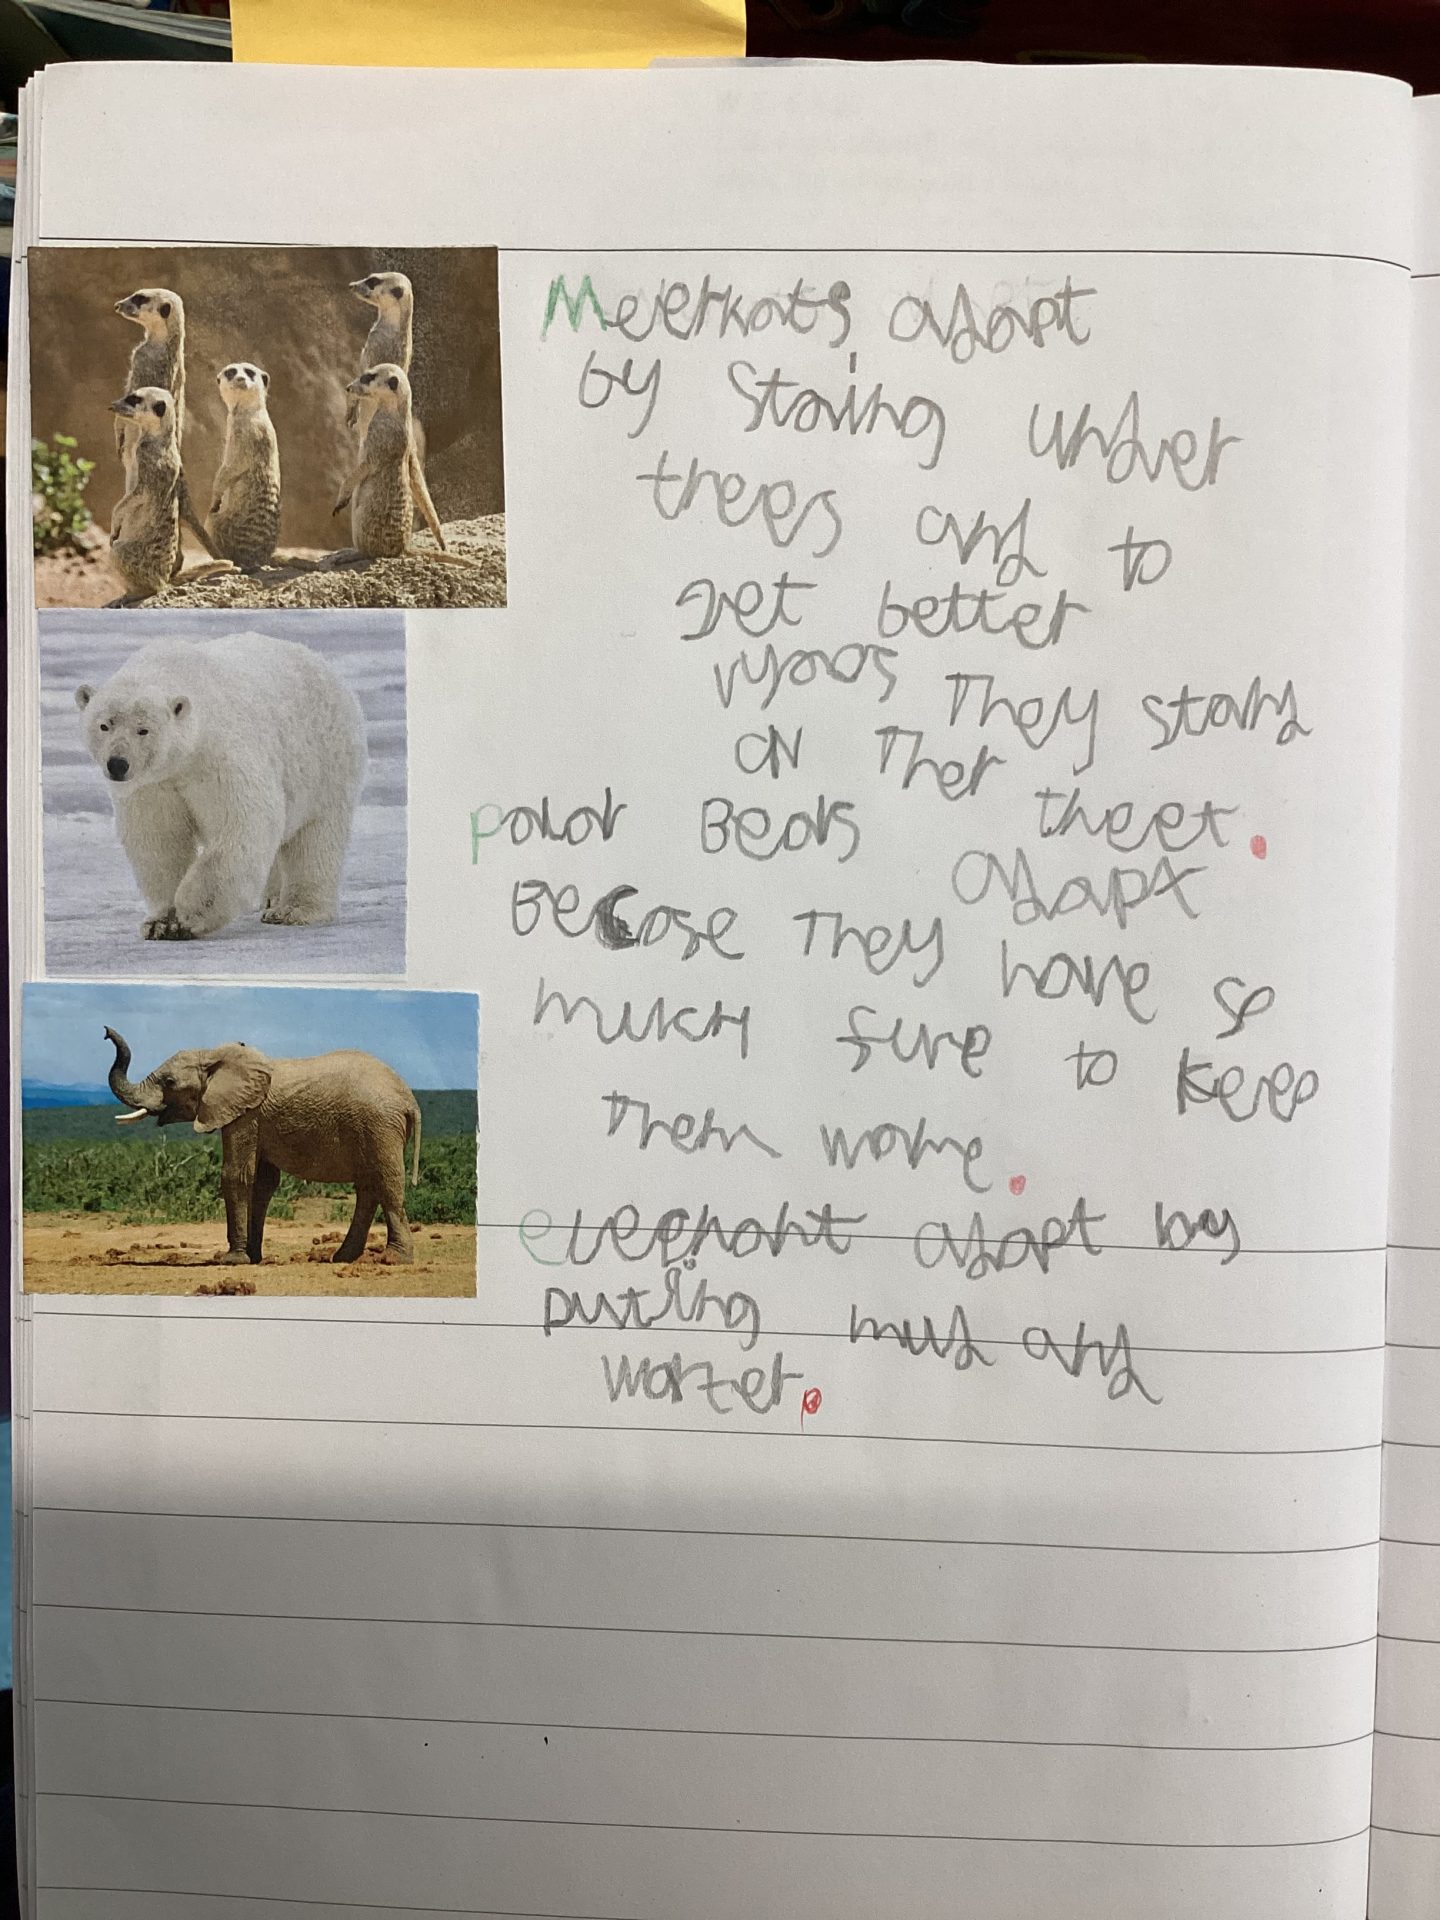 Meerkats adapt
by staing under
trees and to
get better
vyoos They stand
on Ther theet.
Polor Beors adapt
Becose They have so
much fure to keep
Them worme.
eleephant adapt by
puting mud and
worter.